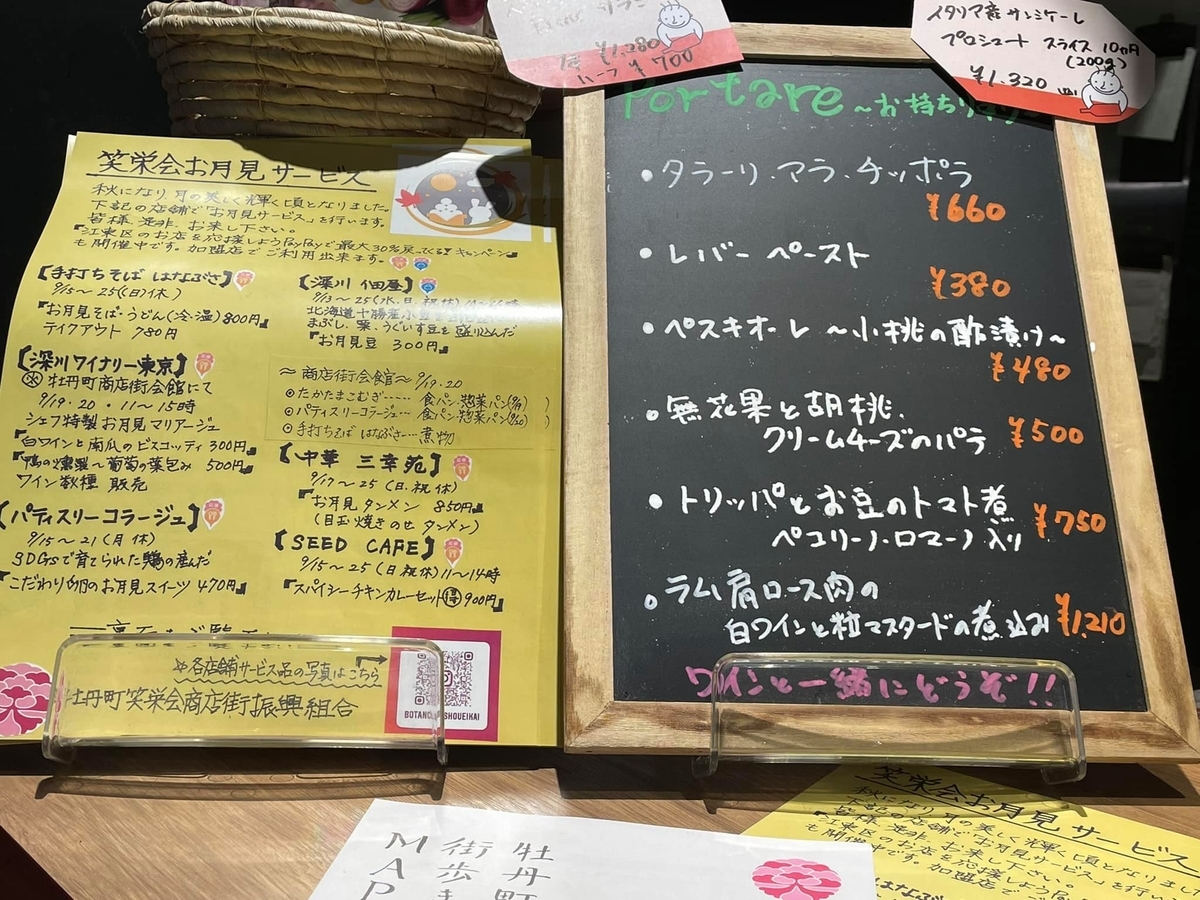 笑栄会お月見サービス
秋になり月の美しく輝く頃となりました。
下記の店舗で「お月見サービス」を行います。
皆様、是非、お来し下さい。
"江東区のお店を応援しようPayPayで最大30%戻ってくる!キャンペーン"
も開催中です。加盟店でご利用出来ます。
【手打ちそば はなぶさ】
9/15〜25(日)休)
『お月見そば・うどん(冷・温)800円』
テイクアウト 780円
【深川ワイナリー東京】
※牡丹町商店街会館にて
9/19・20・11〜15時
シェフ特製お月見マリアージュ
『白ワインと南瓜のビスコッティ 300円』
『鴨の燻製〜葡萄の葉包み 500円』
ワイン数種 販売
【パティスリーコラージュ】
9/15〜21(月休)
SDGsで育てられた鶏の産んだ
『こだわり卵のお月見スイーツ 470円』
【深川 佃屋】
9/13〜25(水・日・祝休)
北海道十勝産小豆を
まぶし、栗、うぐいす豆を盛り込んだ
『お月見豆 300円』
〜商店街会館〜9/19.20
◎たかたまこむぎ…… 食パン・惣菜パン(9/19)
◎パティスリーコラージュ… 食パン・惣菜パン(9/20)
◎手打ちそば はなぶさ……煮物
【中華 三幸苑】
9/17〜25(日.祝休)
『お月見タンメン 850円』
(目玉焼きのせタンメン)
【SEED CAFE】
9/15〜25(日祝休)11〜14時
『スパイシーチキンカレーセット 得 900円』
各店舗サービス品の写真はこちら
牡丹町笑栄会商店街振興組合
BOTANCHO SHOUEIKAI
¥1,280
ハーフ ¥700
イタリア産サンミケーレ
プロシュート スライス 10ヶ月
(200g)
¥1,320
Portare 〜お持ち
・タラーリ・アラ・チッポラ
¥660
・レバーペースト
¥380
・ペスキオーレ 〜小桃の酢漬け〜
¥480
・無花果と胡桃、
クリームチーズのパテ ¥500
・トリッパとお豆のトマト煮
ペコリーノ・ロマーノ入り ¥750
・ラム肩ロース肉の
白ワインと粒マスタードの煮込み ¥1,210
ワインと一緒にどうぞ!!
牡丹町
街歩き
MAP
笑栄会お月見サービス
秋になり月の美しく輝く頃となりました
下記の店舗で「お月見サービス」を行い
皆様、是非、お来し下さい。
"江東区のお店を応援しようPayPay
も開催中です。加盟店で